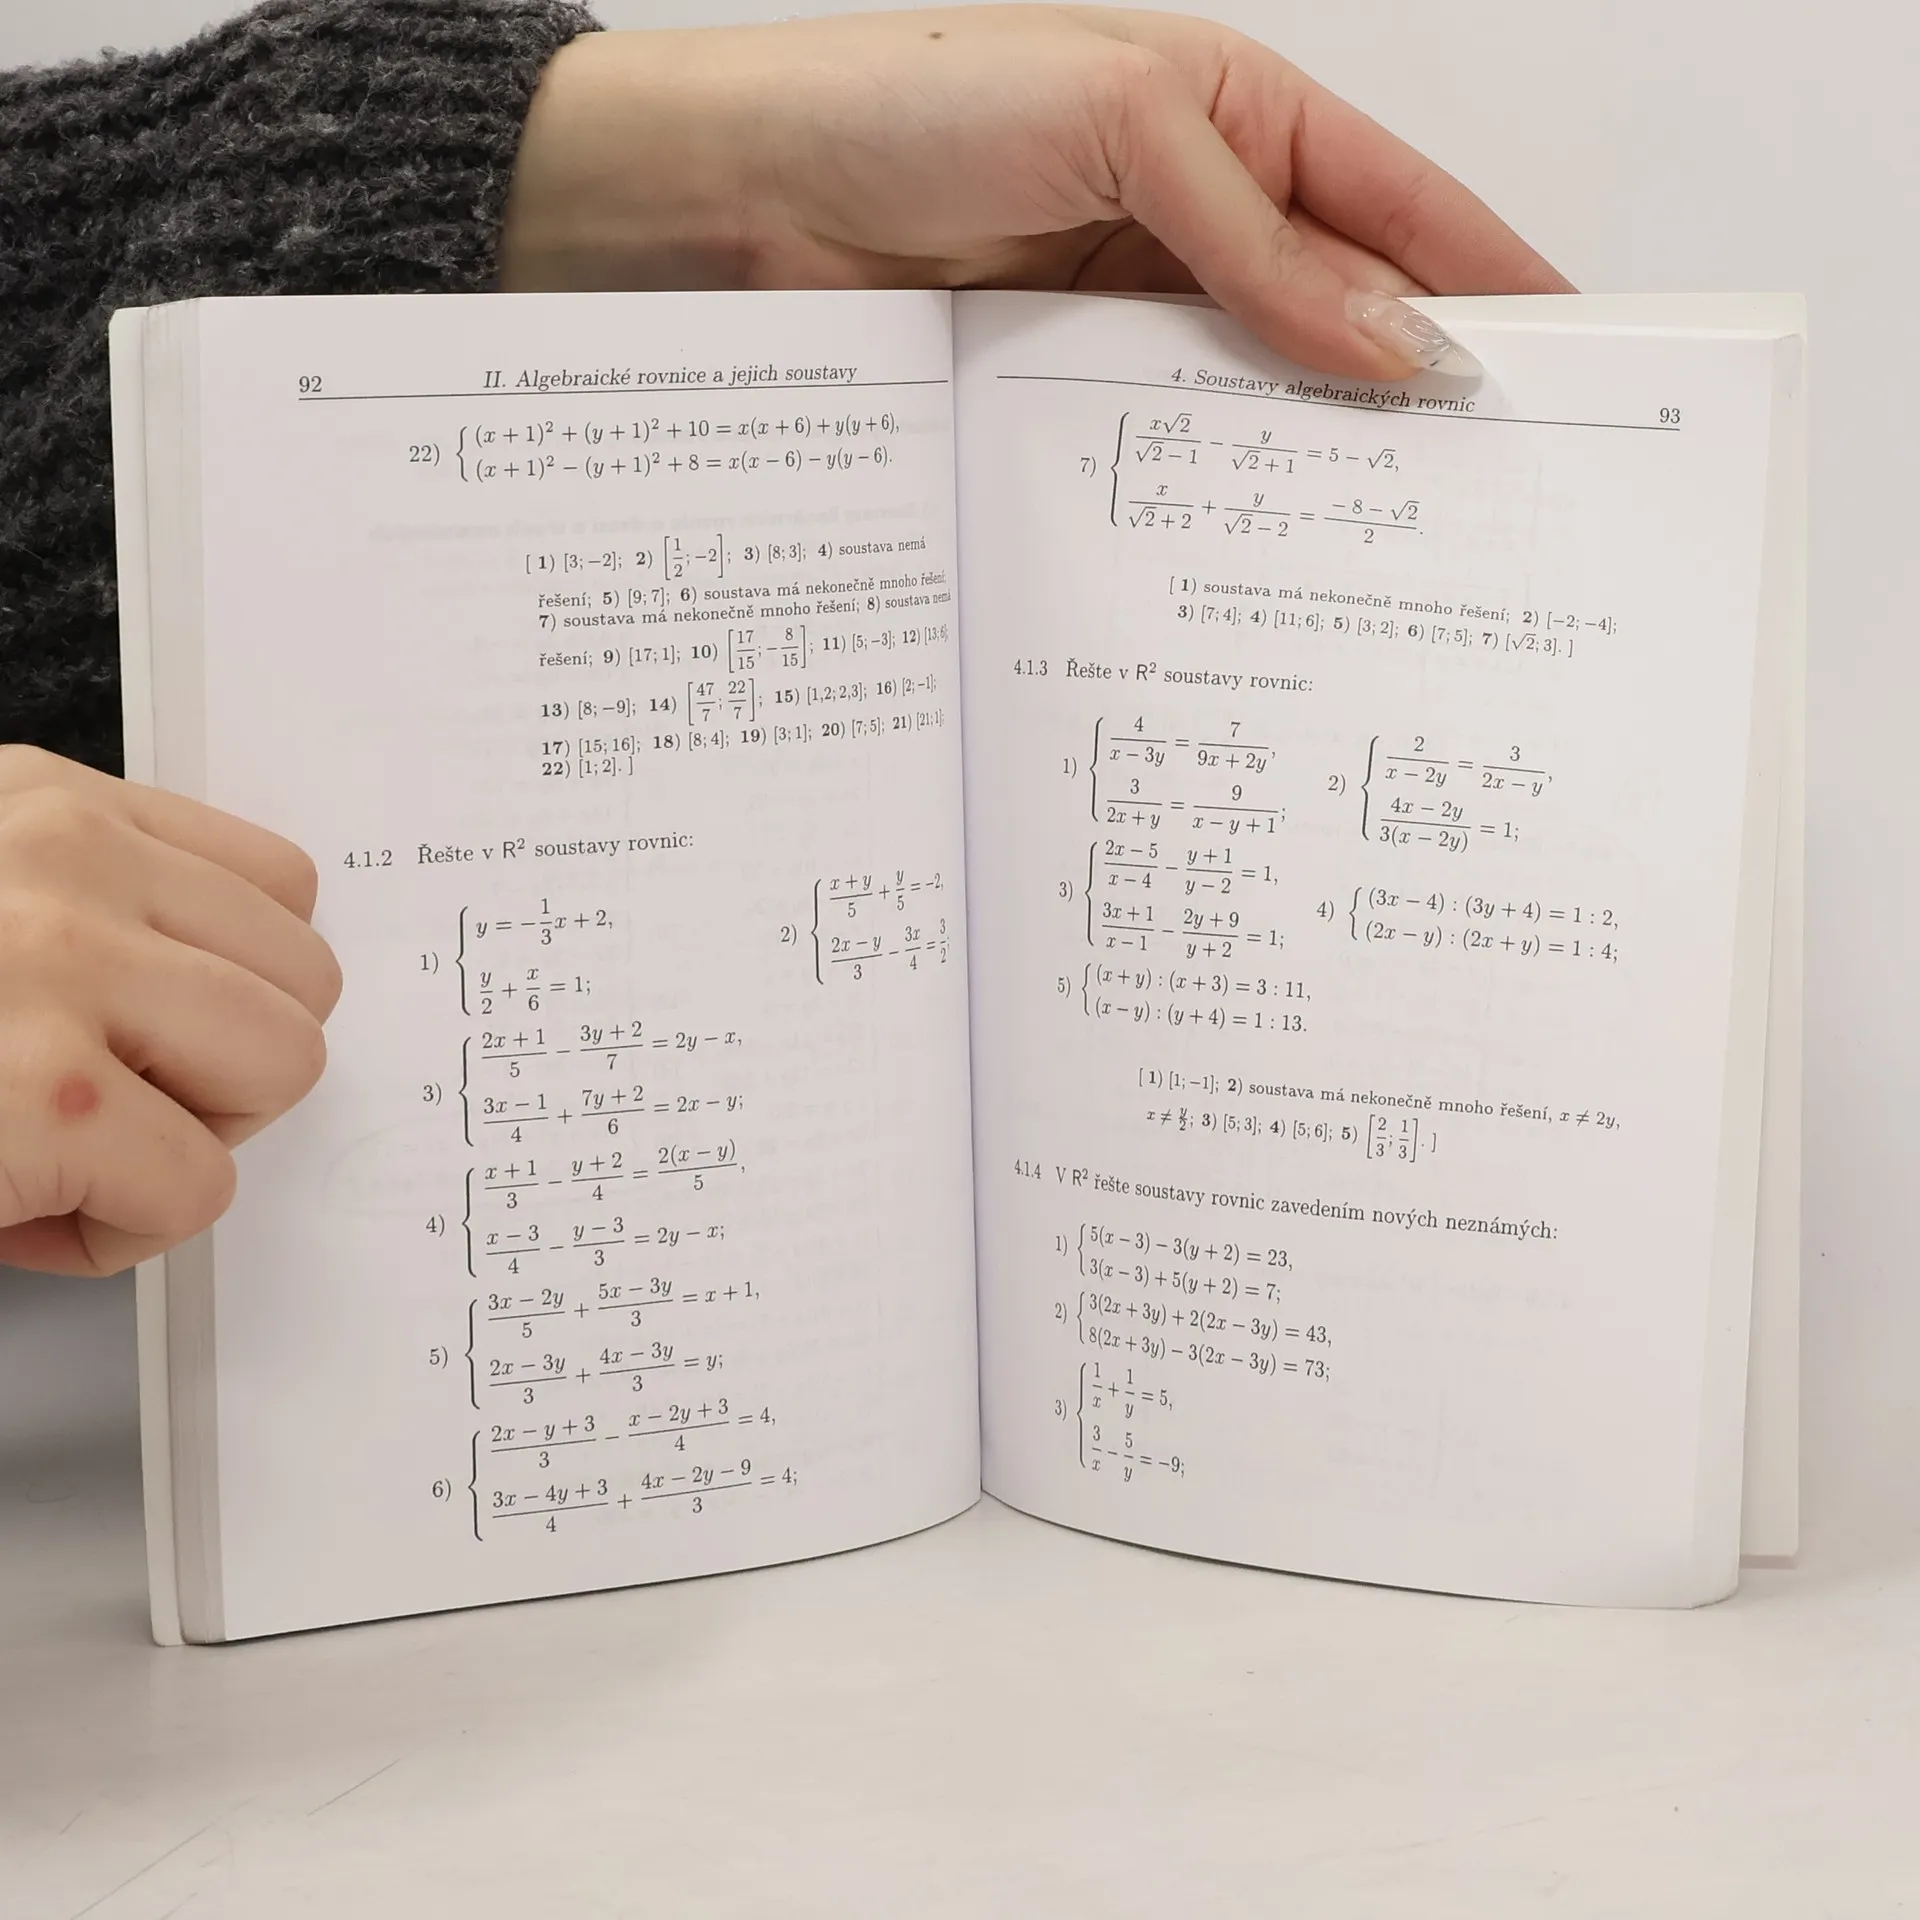 92 II. Algebraické rovnice a jejich soustavy
22) { (x + 1)² + (y + 1)² + 10 = x(x + 6) + y(y + 6),
(x + 1)² − (y + 1)² + 8 = x(x − 6) − y(y − 6).
[ 1) [3; −2]; 2) [1/2; −2]; 3) [8; 3]; 4) soustava nemá
řešení; 5) [9; 7]; 6) soustava má nekonečně mnoho řešení;
7) soustava má nekonečně mnoho řešení; 8) soustava nemá
řešení; 9) [17; 1]; 10) [17/15; −8/15]; 11) [5; −3]; 12) [13; 6];
13) [8; −9]; 14) [47/7; 22/7]; 15) [1,2; 2,3]; 16) [2; −1];
17) [15; 16]; 18) [8; 4]; 19) [3; 1]; 20) [7; 5]; 21) [21; 1];
22) [1; 2]. ]
4.1.2 Řešte v R² soustavy rovnic:
1) { y = −1/3 x + 2,
y/2 + x/6 = 1;
2) { (x + y)/5 + y/5 = −2,
(2x − y)/3 − 3x/4 = 3/2;
3) { (2x + 1)/5 − (3y + 2)/7 = 2y − x,
(3x − 1)/4 + (7y + 2)/6 = 2x − y;
4) { (x + 1)/3 − (y + 2)/4 = 2(x − y)/5,
(x − 3)/4 − (y − 3)/3 = 2y − x;
5) { (3x − 2y)/5 + (5x − 3y)/3 = x + 1,
(2x − 3y)/3 + (4x − 3y)/3 = y;
6) { (2x − y + 3)/3 − (x − 2y + 3)/4 = 4,
(3x − 4y + 3)/4 + (4x − 2y − 9)/3 = 4;
4. Soustavy algebraických rovnic 93
7) { x√2/(√2 − 1) − y/(√2 + 1) = 5 − √2,
x/(√2 + 2) + y/(√2 − 2) = (−8 − √2)/2.
[ 1) soustava má nekonečně mnoho řešení; 2) [−2; −4];
3) [7; 4]; 4) [11; 6]; 5) [3; 2]; 6) [7; 5]; 7) [√2; 3]. ]
4.1.3 Řešte v R² soustavy rovnic:
1) { 4/(x − 3y) = 7/(9x + 2y),
3/(2x + y) = 9/(x − y + 1);
2) { 2/(x − 2y) = 3/(2x − y),
(4x − 2y)/(3(x − 2y)) = 1;
3) { (2x − 5)/(x − 4) − (y + 1)/(y − 2) = 1,
(3x + 1)/(x − 1) − (2y + 9)/(y + 2) = 1;
4) { (3x − 4) : (3y + 4) = 1 : 2,
(2x − y) : (2x + y) = 1 : 4;
5) { (x + y) : (x + 3) = 3 : 11,
(x − y) : (y + 4) = 1 : 13.
[ 1) [1; −1]; 2) soustava má nekonečně mnoho řešení, x ≠ 2y,
x ≠ y/2; 3) [5; 3]; 4) [5; 6]; 5) [2/3; 1/3]. ]
4.1.4 V R² řešte soustavy rovnic zavedením nových neznámých:
1) { 5(x − 3) − 3(y + 2) = 23,
3(x − 3) + 5(y + 2) = 7;
2) { 3(2x + 3y) + 2(2x − 3y) = 43,
8(2x + 3y) − 3(2x − 3y) = 73;
3) { 1/x + 1/y = 5,
3/x − 5/y = −9;